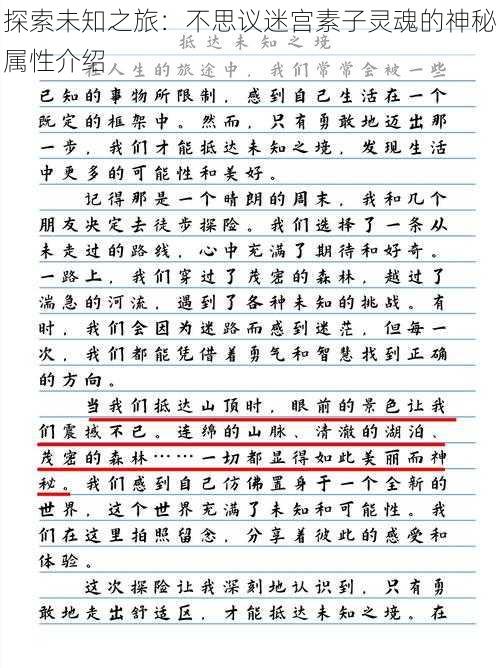 探索未知之旅：不思议迷宫素子灵魂的神秘
属性介绍
抵达未知之境
在人生的旅途中，我们常常会被一些
已知的事物所限制，感到自己生活在一个
既定的框架中。然而，只有勇敢地迈出那
一步，我们才能抵达未知之境，发现生活
中更多的可能性和美好。
记得那是一个晴朗的周末，我和几个
朋友决定去徒步探险。我们选择了一条从
未走过的路线，心中充满了期待和好奇。
一路上，我们穿过了茂密的森林，越过了
湍急的河流，遇到了各种未知的挑战。有
时，我们会因为迷路而感到迷茫，但每一
次，我们都能凭借着勇气和智慧找到正确
的方向。
当我们抵达山顶时，眼前的景色让我
们震撼不已。连绵的山脉、清澈的湖泊、
茂密的森林……一切都显得如此美丽而神
秘。我们感到自己仿佛置身于一个全新的
世界，这个世界充满了未知和可能性。我
们在这里拍照留念，分享着彼此的感受和
体验。
这次探险让我深刻地认识到，只有勇
敢地走出舒适区，才能抵达未知之境。在